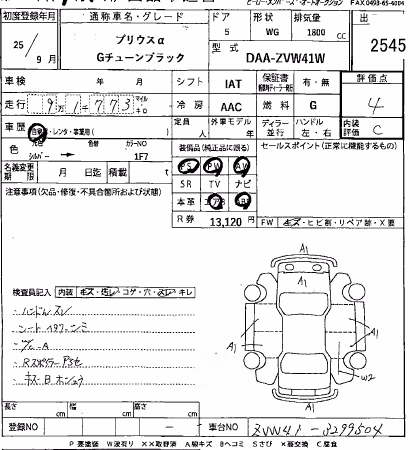 ビーエンタス・オートオークション FAX0493-65-4004
初度登録年月 通称車名・グレード ドア 形状 排気量 出
25/9月 プリウスα Gチューンブラック 5 WG 1800 cc 2545
型式 DAA-ZVW41W
車検 年 月 シフト IAT 保証書 有・無 評価点
走行 9万1773 マイル キロ 冷房 AAC 燃料 G 4
車歴 自家・レンタ・事業用( ) 定員 人 外車モデル 年 ディーラー 並行 ハンドル 左・右 内装評価 C
色 元色 シルバー 色替 カラーNO 1F7 装備品(純正品に限る) セールスポイント(正常に機能するもの)
PS PW AW
名義変更期限 月 日迄 積載 t
SR TV ナビ
注意事項(欠品・修復・不具合箇所および状態)
本革 エアB ABS
R券 13,120円 FW キズ・ヒビ割・リペア跡・X要
A1
A1
検査員記入 内装 キズ・汚レ・コゲ・穴・ヌレ・キレ
ハンドルスレ
A1 A1
W2
A1
長さ cm 幅 cm 高さ cm
登録NO － 車台NO ZVW41-3299504
P 要塗装 W 波有り ××取替済 A 線キズ Bヘコミ Sさび ×要交換 C 腐食